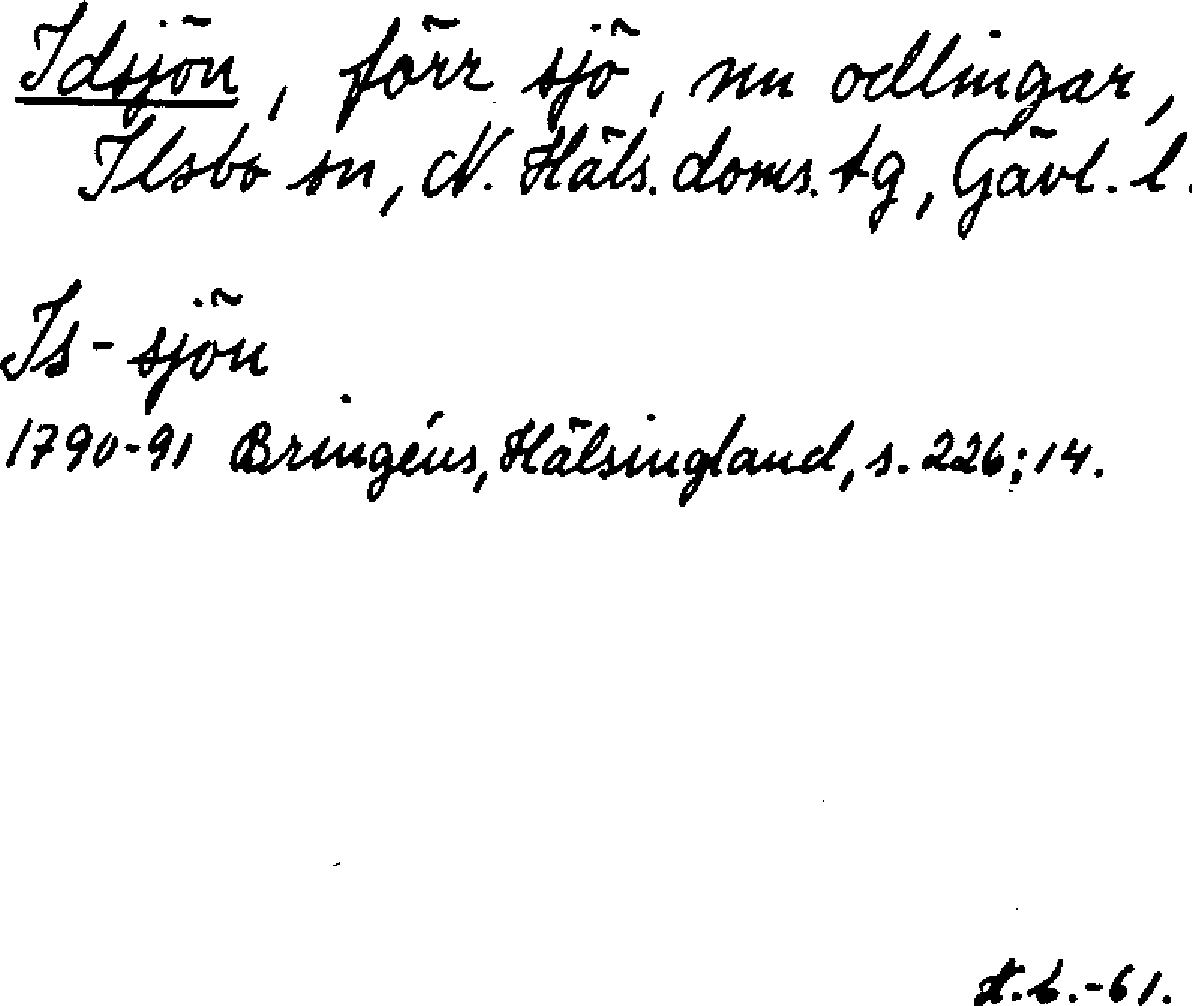 Idsjön, förr sjö, nu odlingar,
Ilsbo sn, N. Häls. doms. tg, Gävl. l.
Is-sjön
1790-91 Bringéus, Hälsingland, s. 226; 14.
-61.